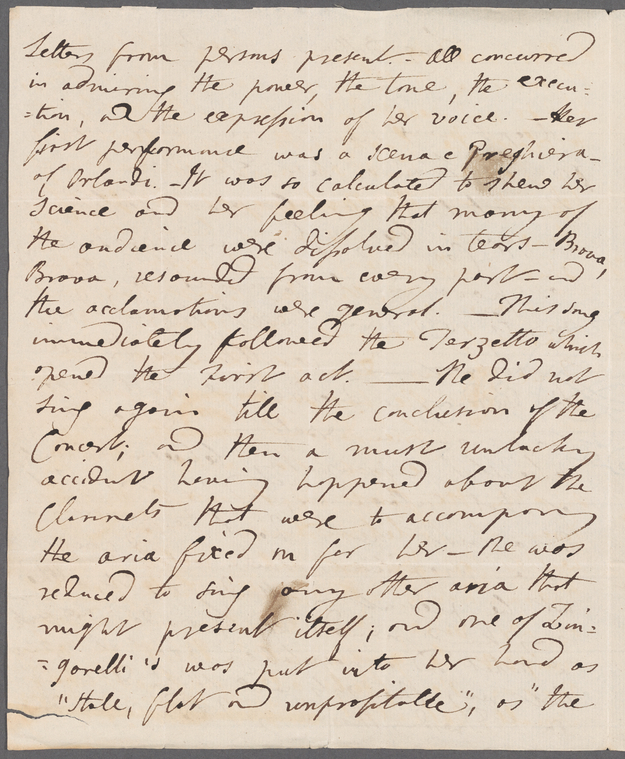 Letters from persons present. - All concurred
in admiring the power, the tone, the execu=
=tion, and the expression of her voice. - Her
first performance was a scena e Preghiera -
of Orlandi. - It was so calculated to shew her
Science and her feeling that many of
the audience were dissolved in tears - Brava,
Brava, resounded from every part - and
the acclamations were general. - This song
immediately followed the Terzetto which
opened the First act. — She did not
sing again till the conclusion of the
Concert; and then a most unlucky
accident having happened about the
Clarinets that were to accompany
the aria fixed on for her - she was
reduced to sing any other aria that
might present itself; and one of Zin=
=garelli's was put into her hand as
"Stale, flat and unprofitable", as "the